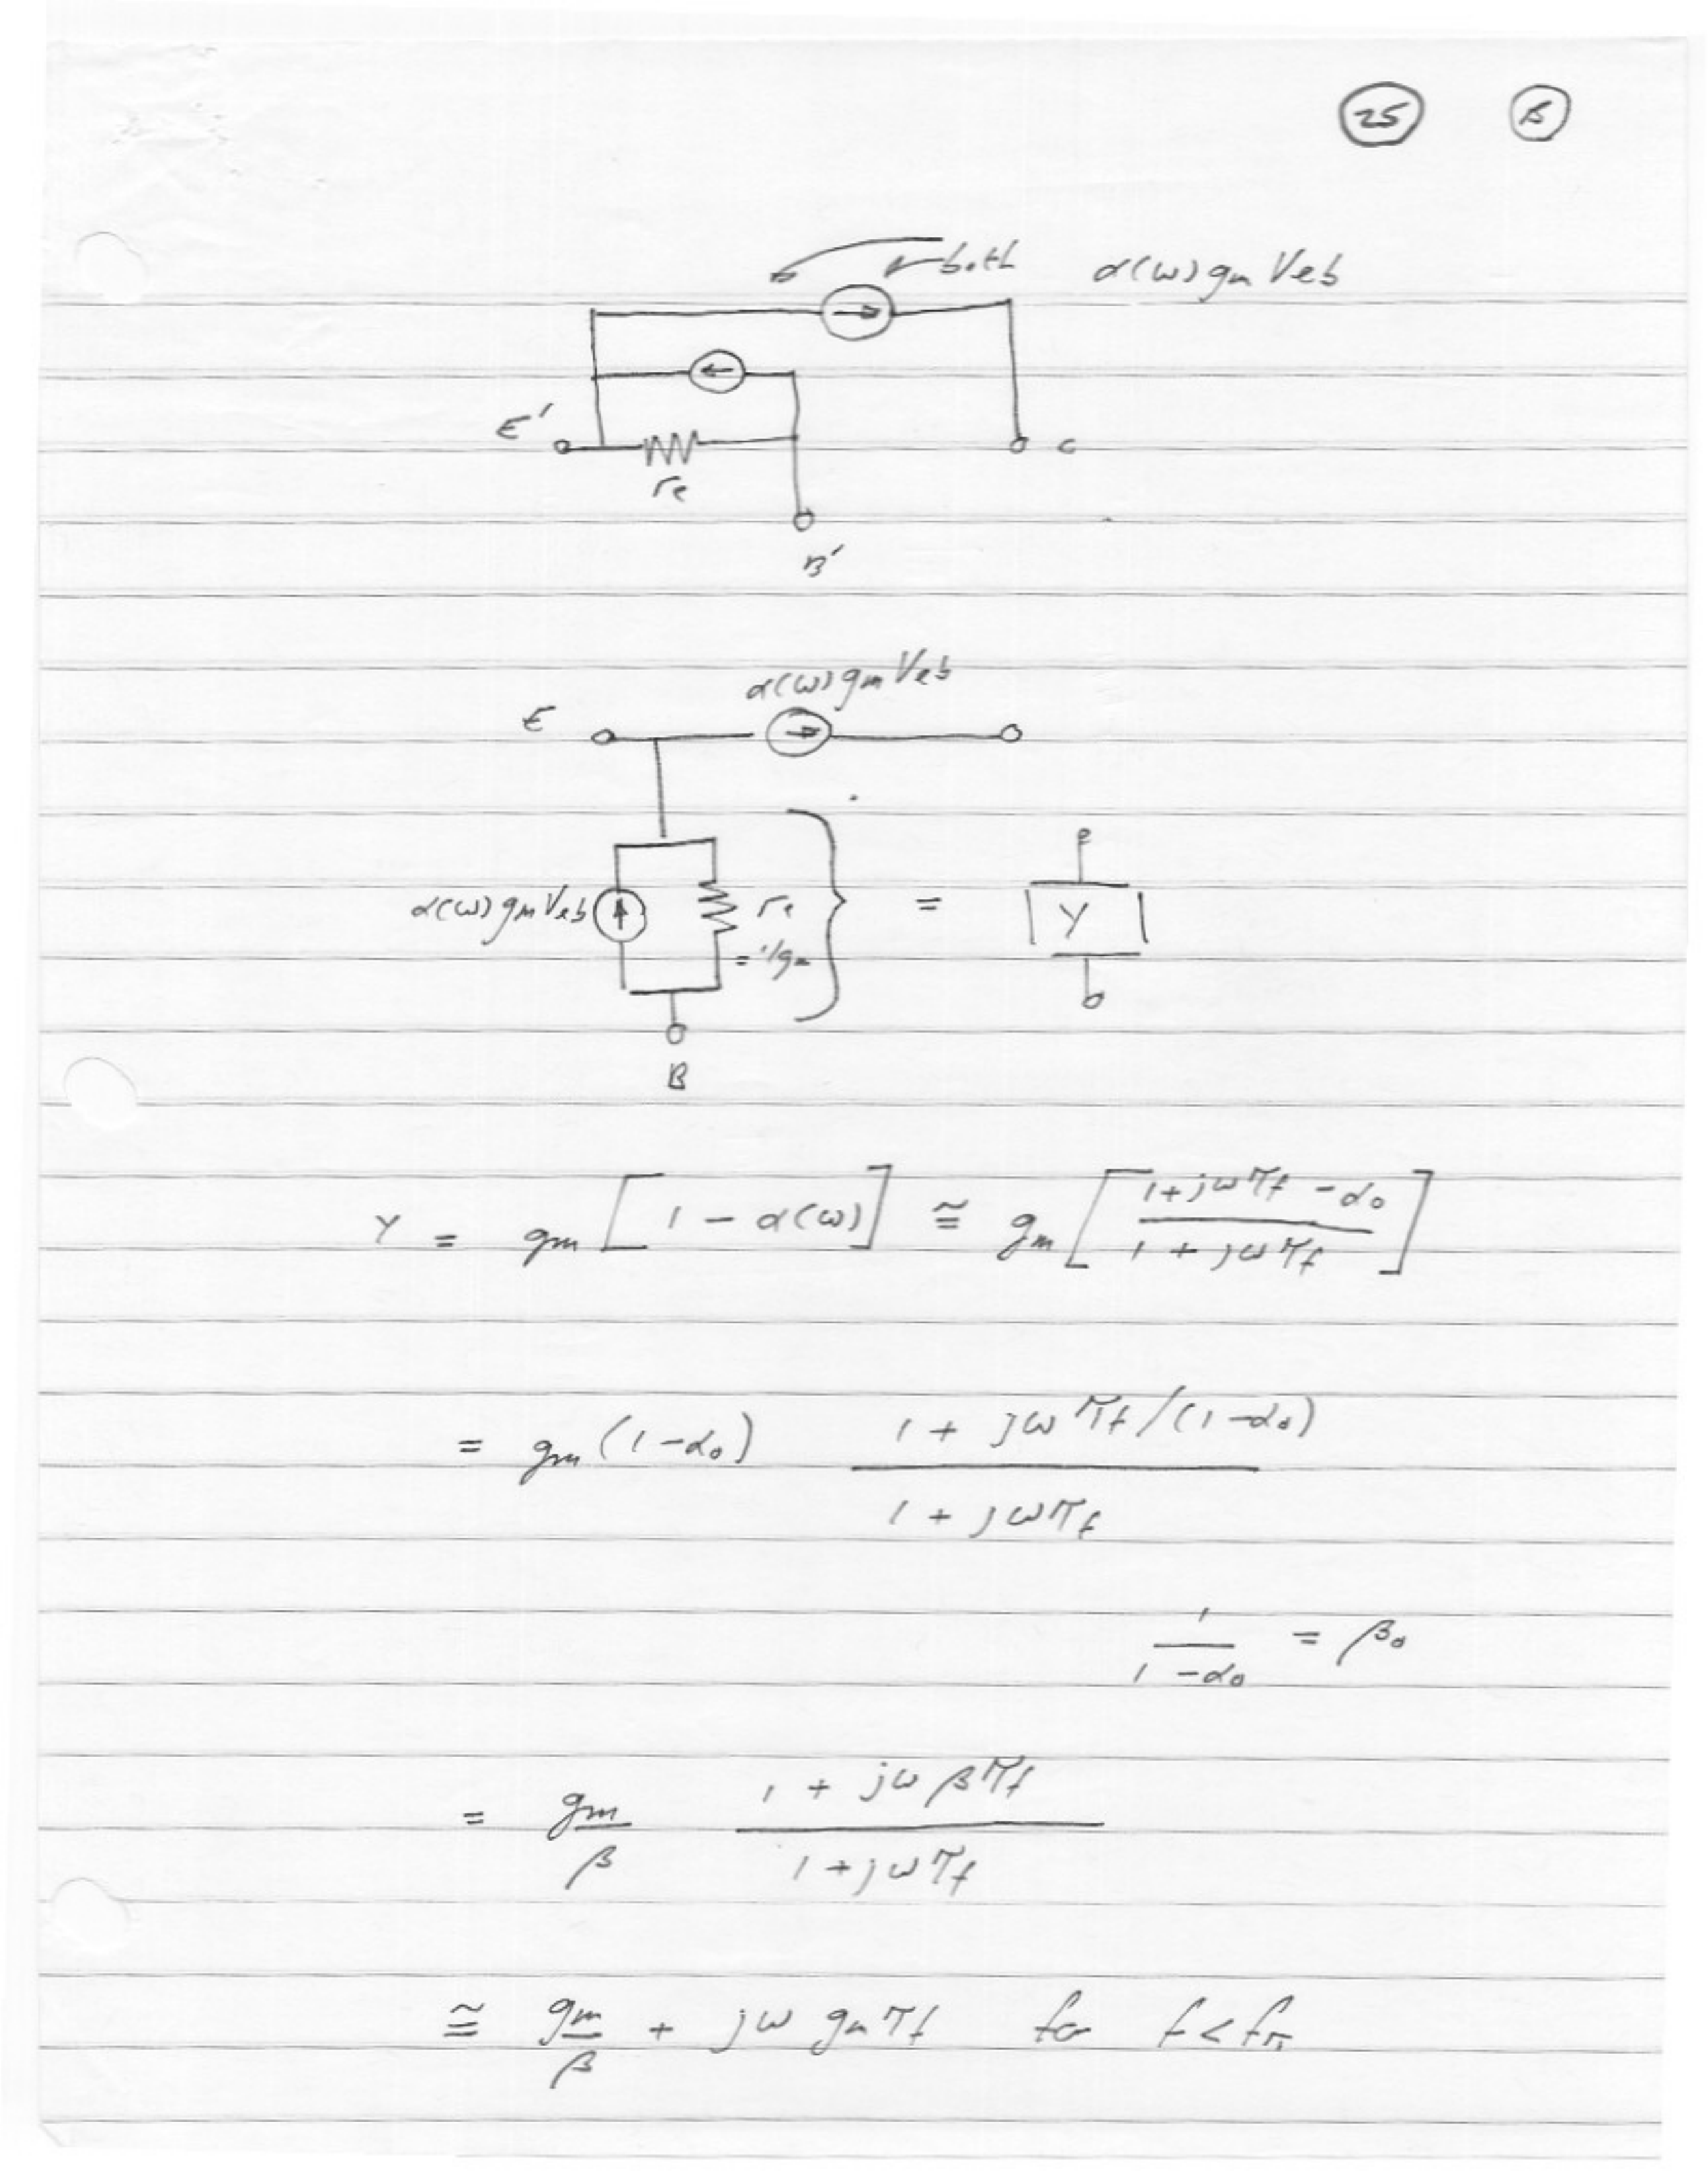 25 B
both α(ω) gm Veb
E'
re
C
B'
α(ω) gm Veb
E
α(ω) gm Veb re = Y
= 1/gm
B
Y = gm [ 1 - α(ω) ] ≅ gm [ (1+jωτf - α0) / (1 + jωτf) ]
= gm (1-α0) (1 + jωτf/(1-α0)) / (1 + jωτf)
1 / (1 - α0) = β0
= gm/β (1 + jω βτf) / (1 + jωτf)
≅ gm/β + jω gm τf for f <